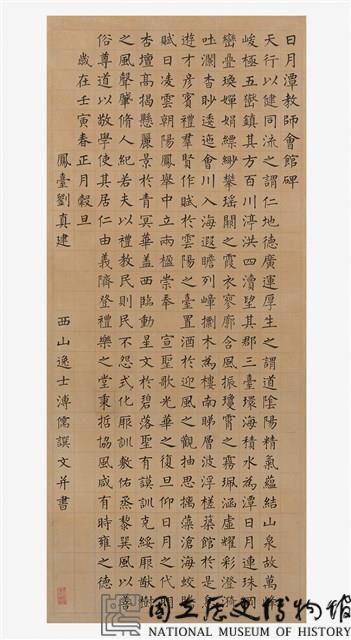 日月潭教師會館碑
天行以健同流之謂仁地德廣運厚生之謂道陰陽精氣蘊結山泉故萬條
峻極五嶽鎮其方百川渟洪四瀆望其郡三臺環海積水為潭日月連珠岡
巒疊璞嬋娟縹緲攀瑤關之霞衣寥廓含風振瓊霄之霧珮涵虛耀彩澄流
吐瀾杳眇迤迆會川入海遐瞻列嶂捫木為樓南睇層波浮槎築館於是鳥
遊才彥賓禮羣賢作賦於雲陽之臺置酒於迎風之觀抽思摛藻滄海蛟
賦日凌雲朝陽鳳舉中立兩楹崇奉 宣聖歌光華之復旦仰日月之代明
杏壇高揭懸麗景於青冥華蓋西臨動星文於碧落聖有謨訓克綏厥猷樹
之風聲肇脩人紀若夫以禮教民則民不怨式化厥訓敷佑烝黎巽風以善
俗尊道以敬學使其居仁由義濟登禮樂之堂秉哲協風咸有時雍之德
歲在壬寅春正月穀旦
鳳臺劉真建 西山逸士溥儒譔文并書
國立歷史博物館
NATIONAL MUSEUM OF HISTORY